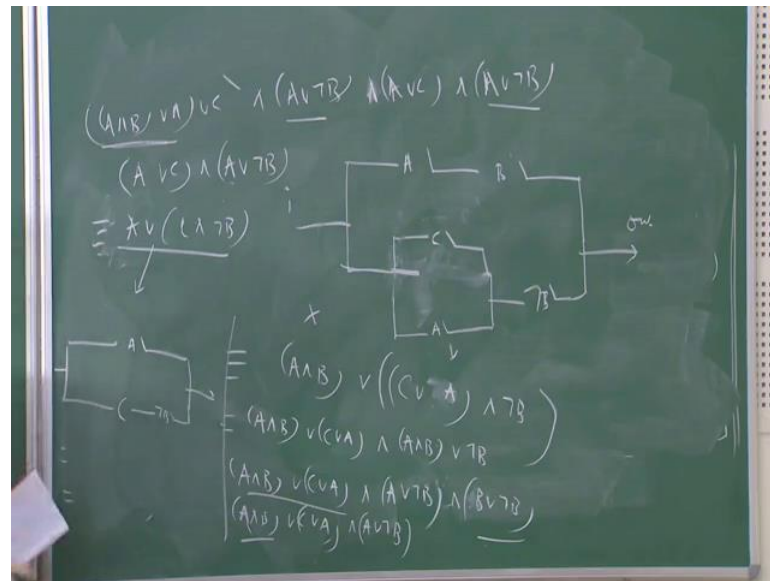 ((A∧B) ∨A) ∨C ∧ (A∨¬B) ∧(A∨C) ∧ (A∨¬B)
(A ∨C) ∧ (A∨¬B)
≡ A∨ (C∧¬B)
i
A
B
C
A
¬B
out
A
C
¬B
≡ (A∧B) ∨ ((C∨A) ∧¬B)
= (A∧B) ∨(C∨A) ∧ (A∧B) ∨¬B
(A∧B) ∨(C∨A) ∧ (A∨¬B) ∧ (B∨¬B)
(A∧B) ∨(C∨A) ∧ (A∨¬B)